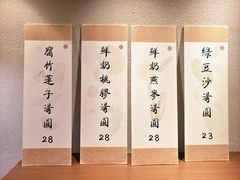 腐竹蓮子湯圓
28
鮮奶桃膠湯圓
28
鮮奶燕麥湯圓
28
綠豆沙湯圓
23